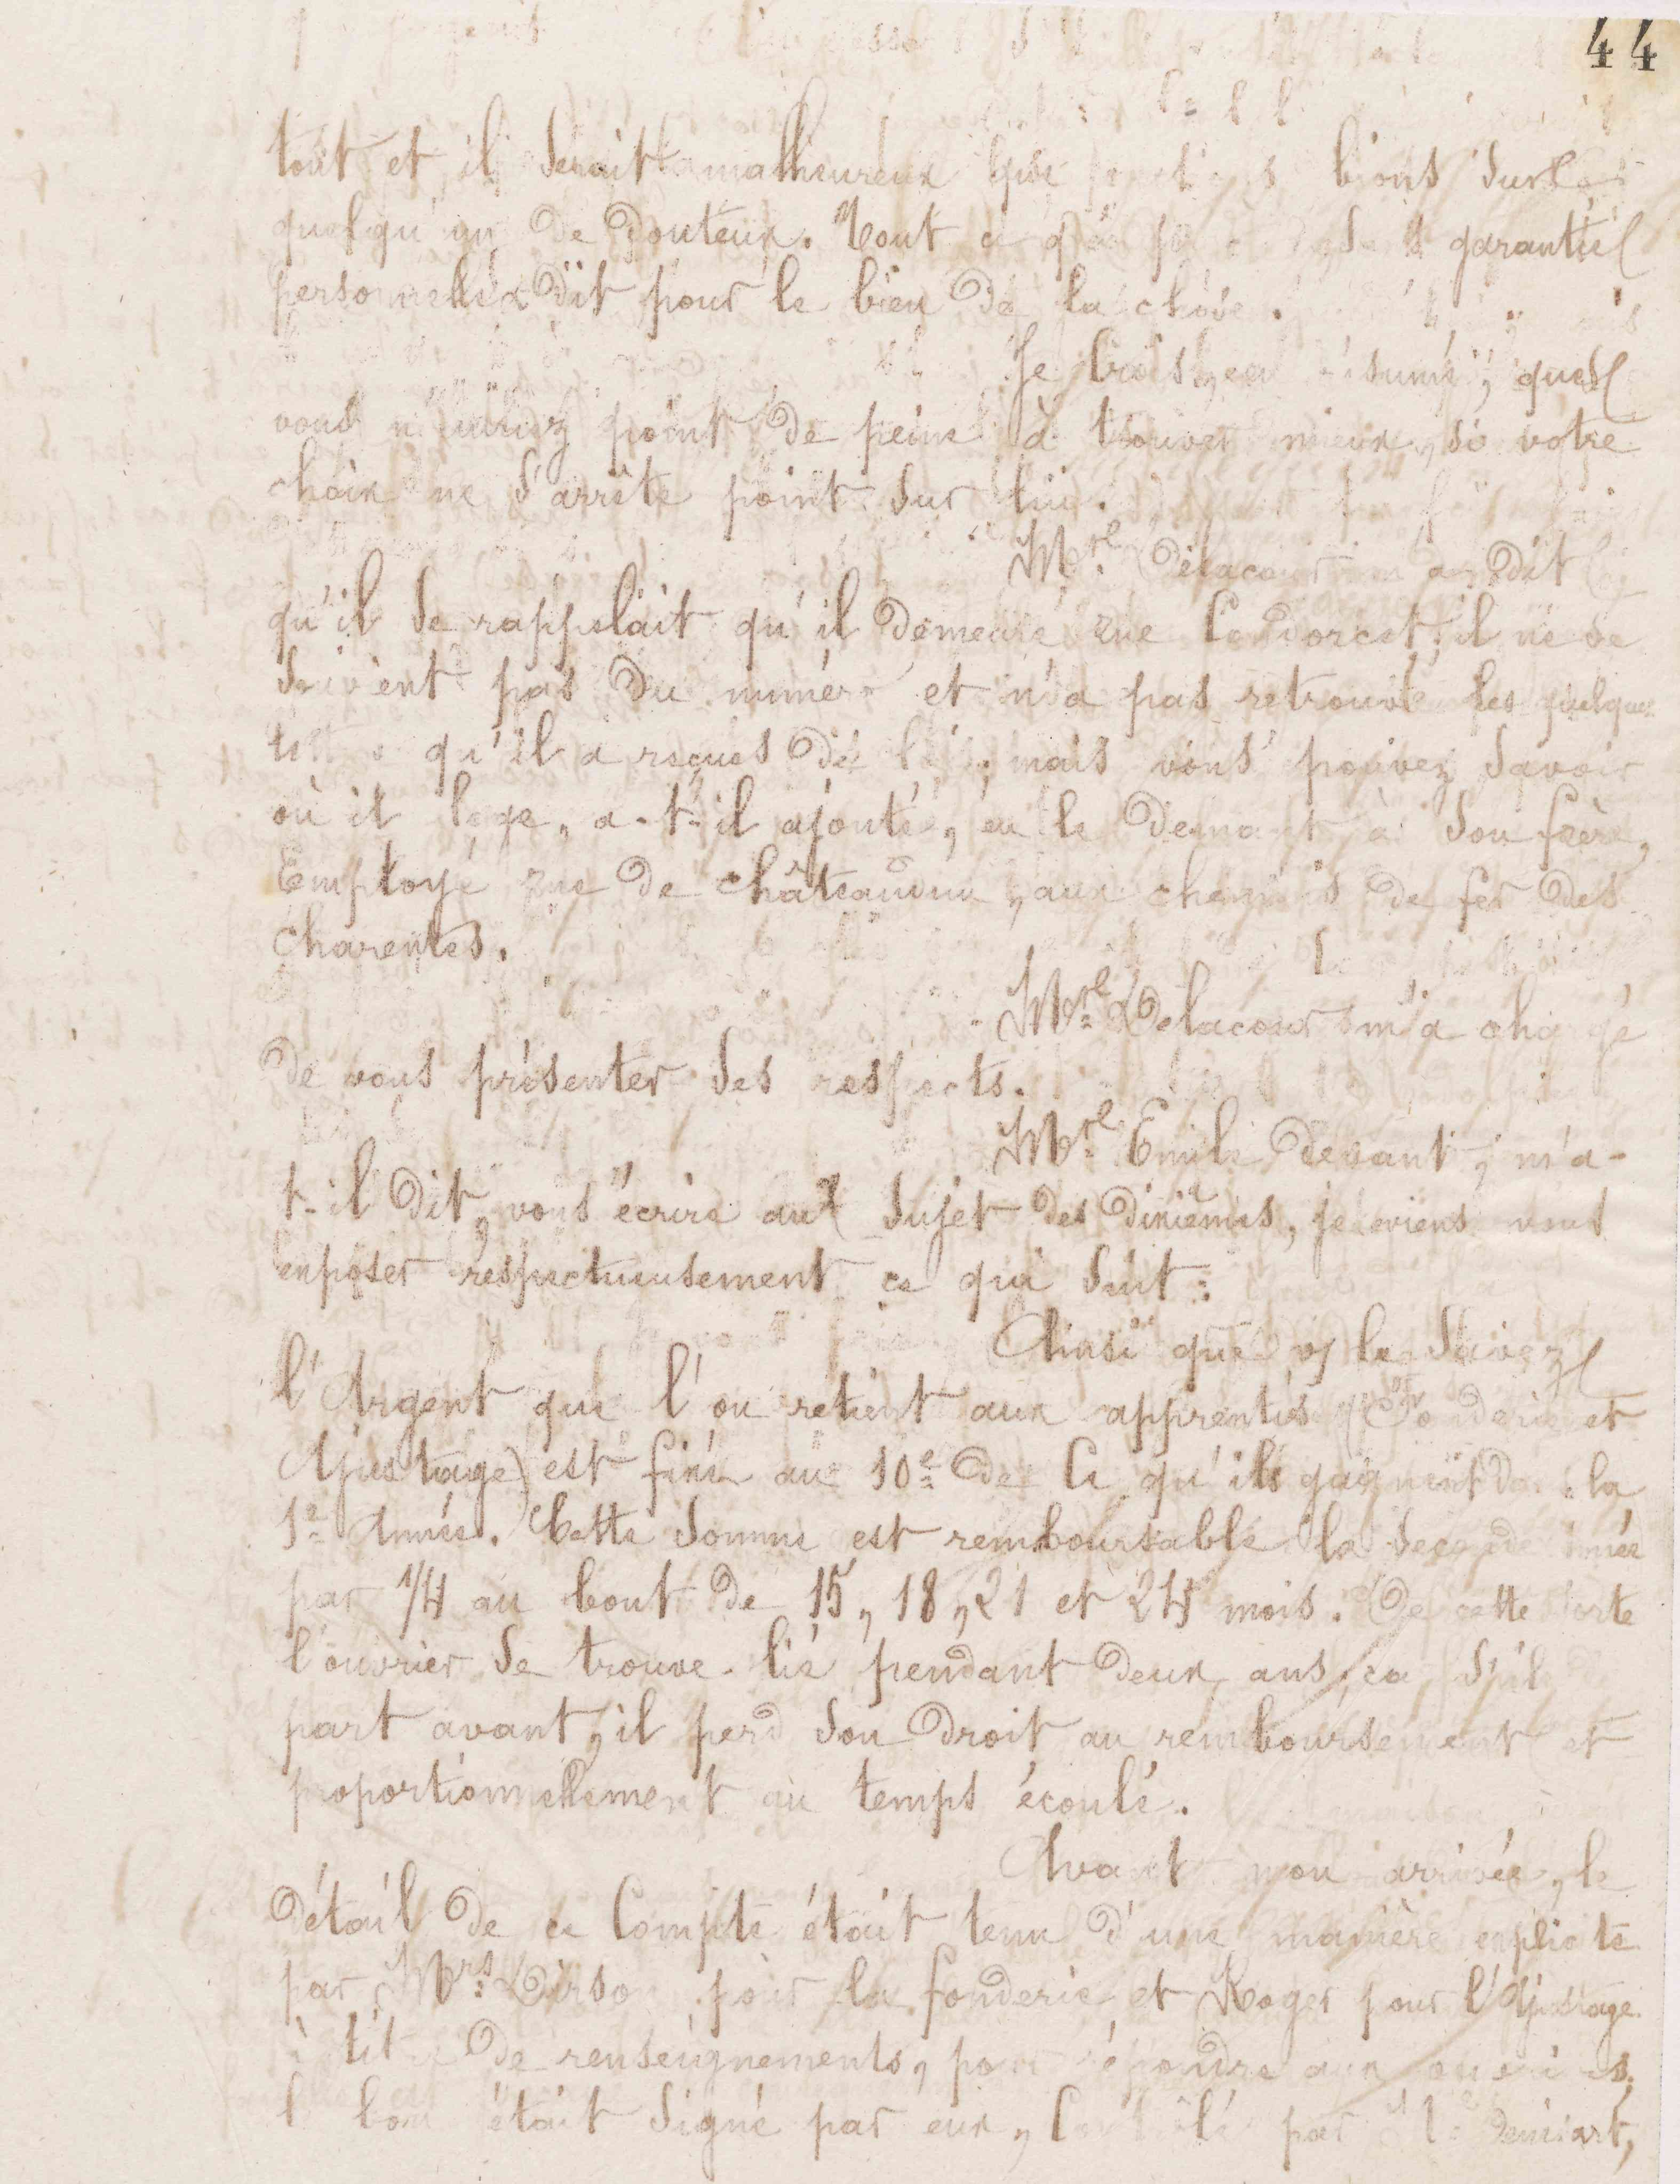 44
tout et il serait malheureux que bions sur
quelqu'un de douteux. Tout ce garantie
personnelle dit pour le bien de la chose.
Je crois, en résumé, que
vous n'aurez point de peine à trouver mieux, si votre
choix ne s'arrête point sur lui.
Mr. Delacour a dit
qu'il se rappelait qu'il demeure rue Condorcet; il ne se
souvient pas du numéro et n'a pas retrouvé les quelques
qu'il a reçues de lui; mais vous pouvez savoir
où il loge, a-t-il ajouté, en le demant à son frère,
Employé rue de Châteaudun, aux chemins de fer des
Charentes.
Mr. Delacour m'a chargé
de vous présenter ses respects.
Mr. Emile devant, m'a-
t-il dit, vous écrire au sujet des dixièmes, je viens vous
exposer respectueusement ce qui suit:
Ainsi que vs le savez
l'Argent que l'on retient aux apprentis (Fonderie et
Ajustage) est fixé au 10e de ce qu'ils gagnent dans la
1e Année. Cette somme est remboursable la seconde année
par 1/4 au bout de 15, 18, 21 et 24 mois. De cette sorte
l'ouvrier se trouve lié pendant deux ans, car s'il
part avant, il perd son droit au remboursement et
proportionnellement au temps écoulé.
Avant mon arrivée, le
détail de ce Compte était tenu d'une manière explicite
par Mrs. pour la fonderie et Roger pour l'Ajustage
à titre de renseignements, pour répondre aux ouvriers.
bon était signé par eux, Contrôlé par